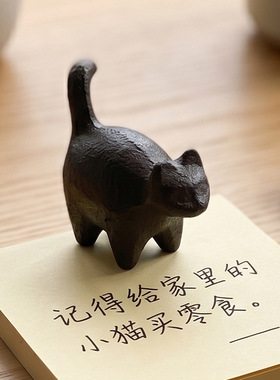 记得给家里的
小猫买零食。